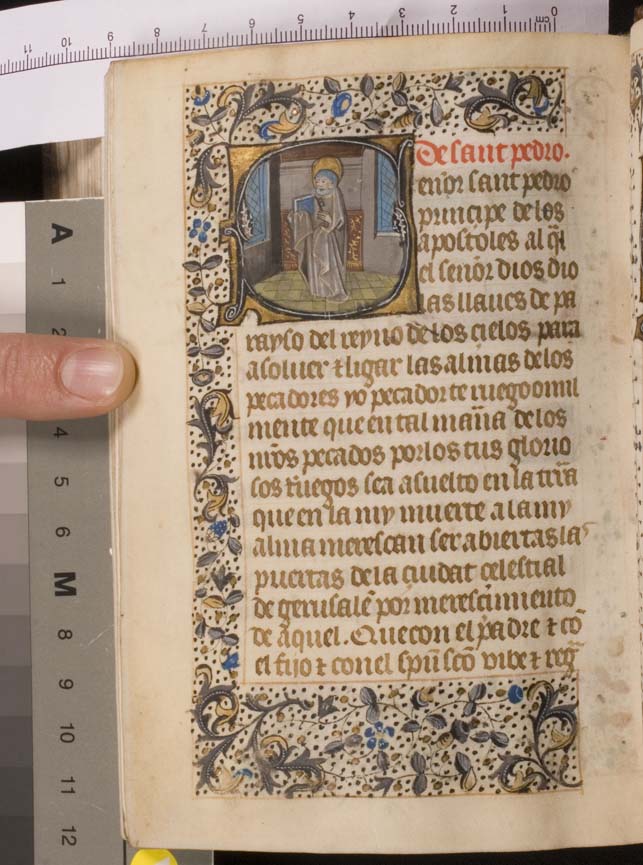 0 1 2 3 4 5 6 7 8 9 10 11
cm
A
1
2
4
5
6
M
8
9
10
11
12
De sant pedro.
Senor sant pedro
principe de los
apostoles al q̄l
el senor dios dio
las llaues de pa
rayso del reyno de los cielos para
asoluer ⁊ ligar las almas de los
pecadores yo pecador te ruego omil
mente que en tal man̄a de los
mr̄os pecados por los tus glorio
sos rruegos sea asuelto en la trr̄a
que en la my muerte a la my
alma merescan ser abiertas las
puertas de la ciudat celestial
de gerusalē por merescimiento
de aquel. Que con el padre ⁊ cō
el fijo ⁊ con el spū scō vibe ⁊ reḡ